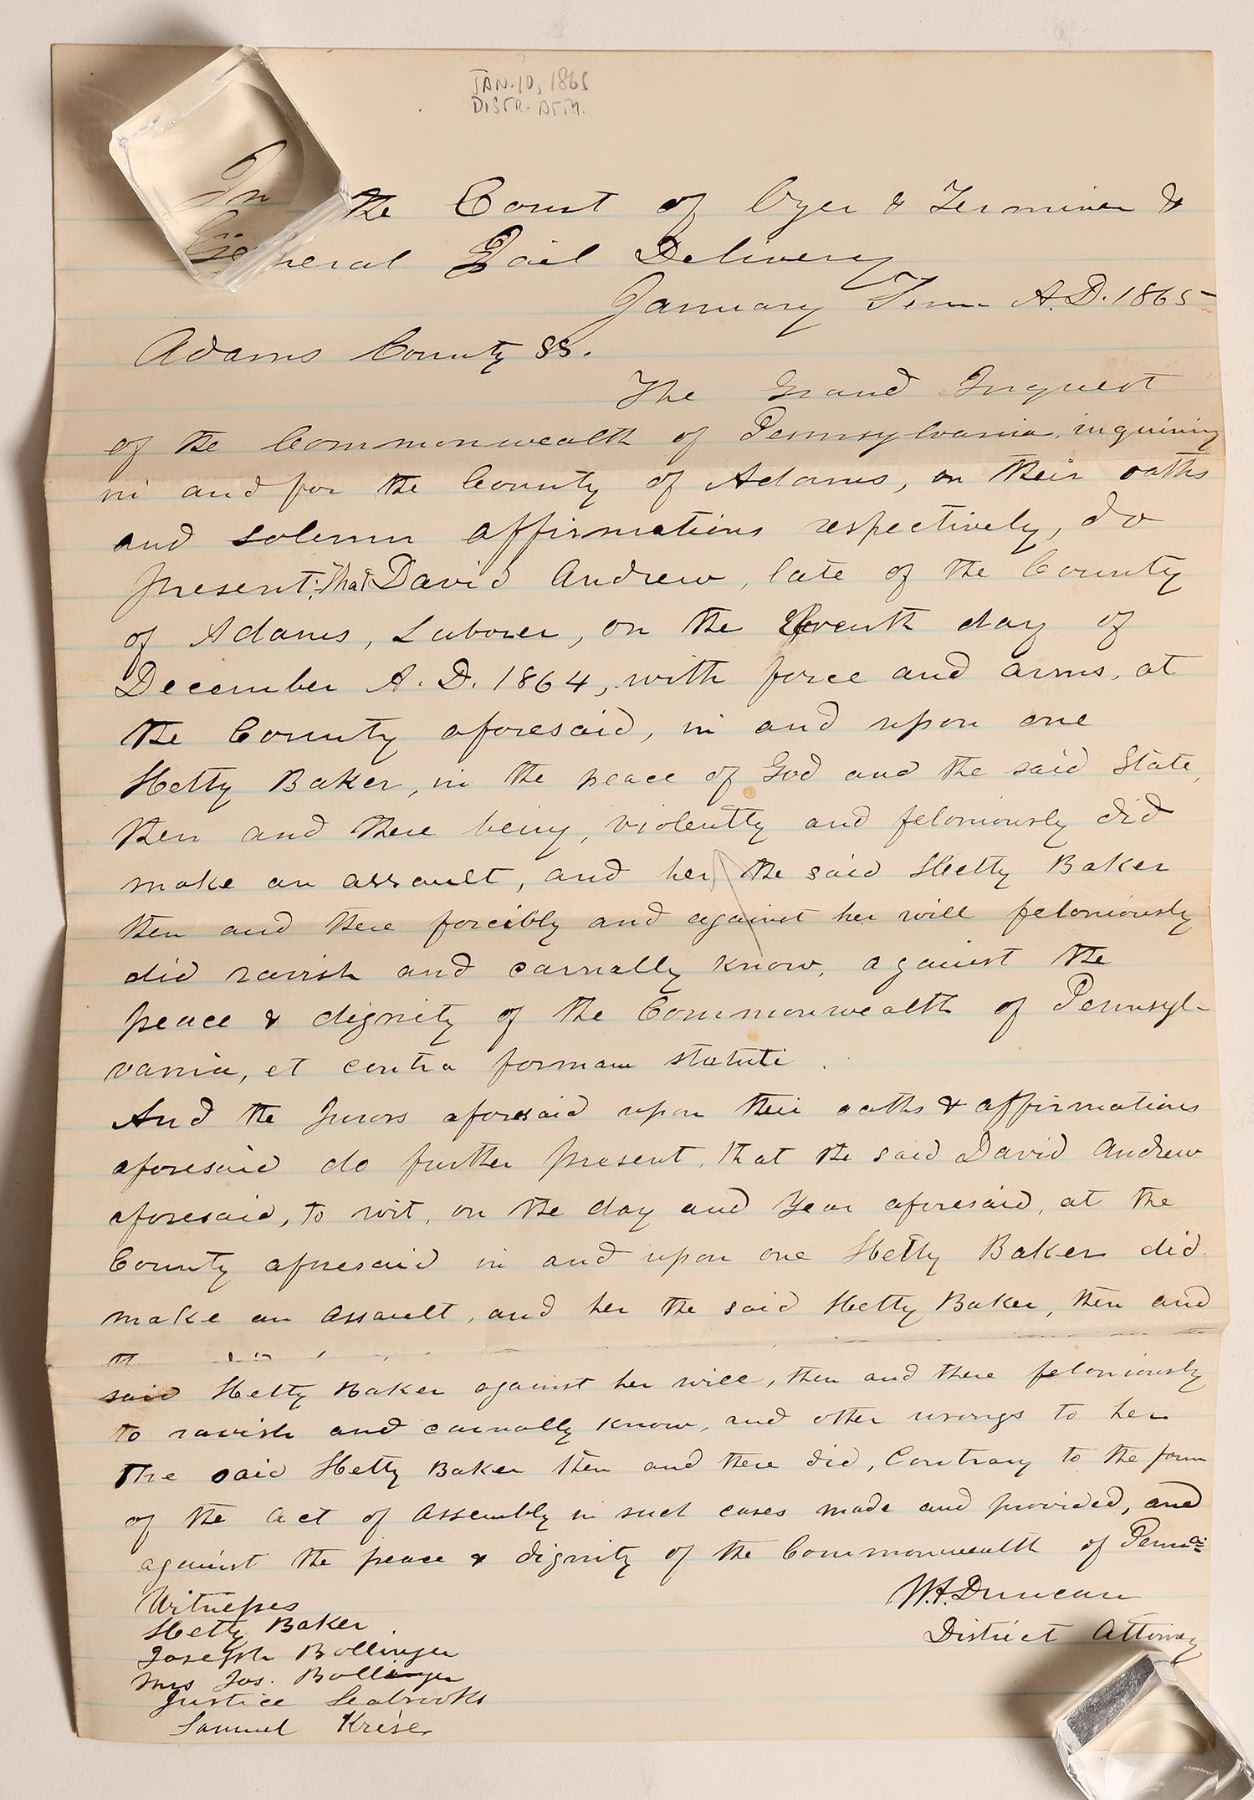 JAN. 10, 1865
DISTR. ATTY.
In the Court of Oyer & Terminer &
General Jail Delivery
January Term A.D. 1865
Adams County SS.
The Grand Inquest
of the Commonwealth of Pennsylvania, inquiring
in and for the County of Adams, on their oaths
and solemn affirmations respectively, do
present: That David Andrew, late of the County
of Adams, Laborer, on the day of
December A.D. 1864, with force and arms, at
the County aforesaid, in and upon one
Hetty Baker, in the peace of God and the said State,
then and there being, violently and feloniously did
make an assault, and her, the said Hetty Baker
then and there forcibly and against her will feloniously
did ravish and carnally know, against the
peace & dignity of the Commonwealth of Pennsyl-
vania, et contra formam statuti.
And the Jurors aforesaid upon their oaths & affirmations
aforesaid do further present, that the said David Andrew
aforesaid, to wit, on the day and year aforesaid, at the
County aforesaid in and upon one Hetty Baker did
make an assault, and her the said Hetty Baker, then and
said Hetty Baker against her will, then and there feloniously
to ravish and carnally know, and other wrongs to her
the said Hetty Baker then and there did, Contrary to the form
of the act of Assembly in such cases made and provided, and
against the peace & dignity of the Commonwealth of Penna
W.A. Duncan
District Attorney
Witnesses
Hetty Baker
Joseph Bollinger
Mrs Jos. Bollinger
Justice Seabrooks
Samuel Krise